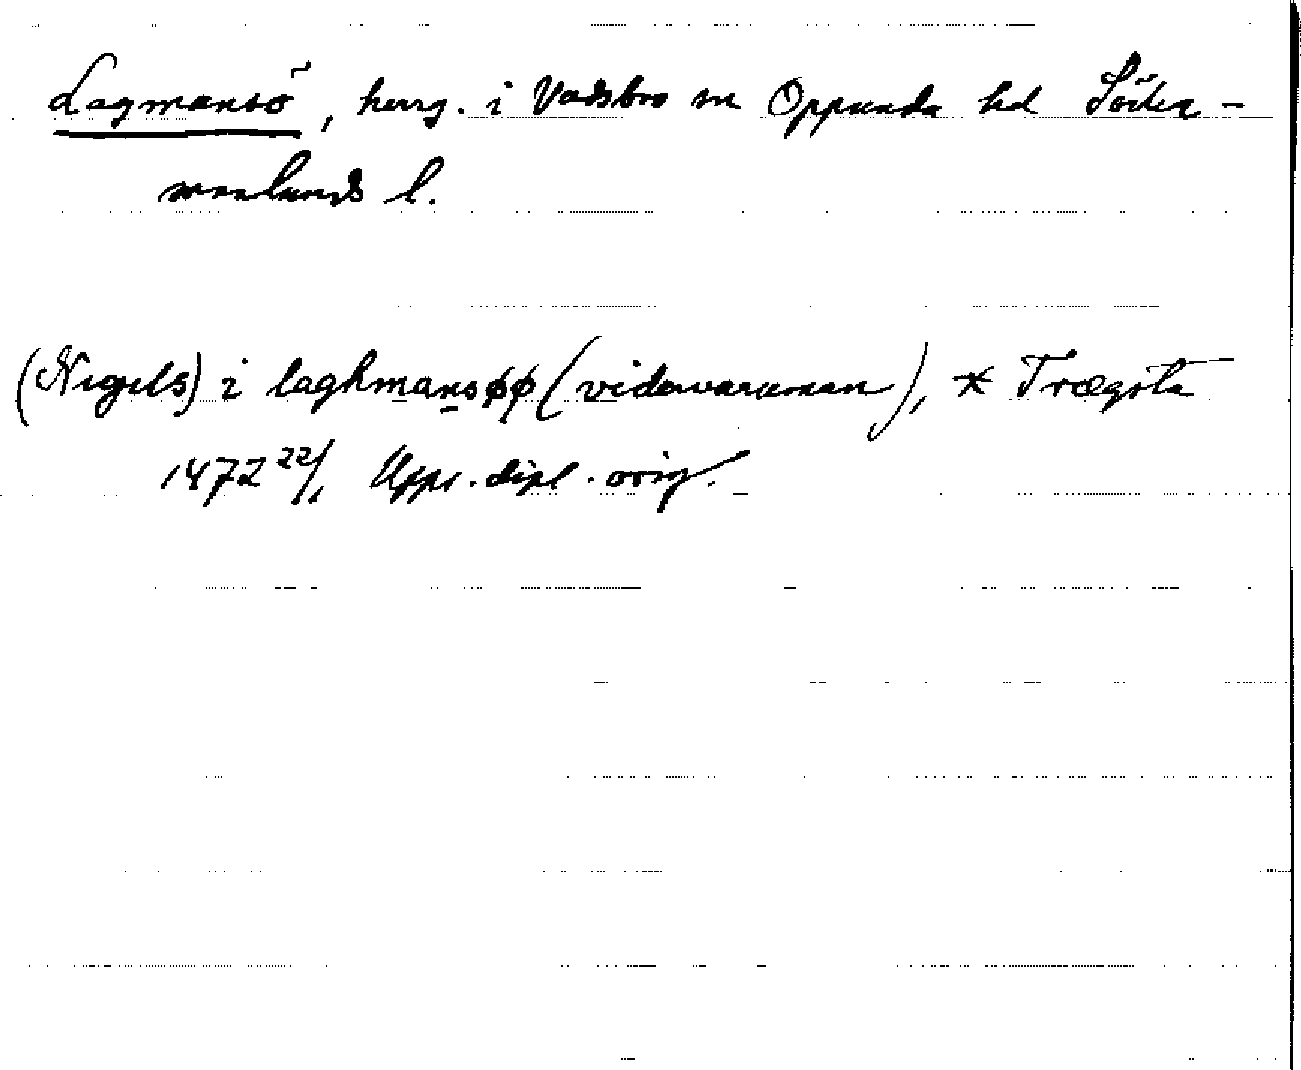 Lagmansö, herrg. i Vadsbro sn Oppunda hd Söder-
manlands l.
(Nigels) i laghmansøø (vidervaruman), * Trægsta
1472 22/1 Uppl. dipl. orig.